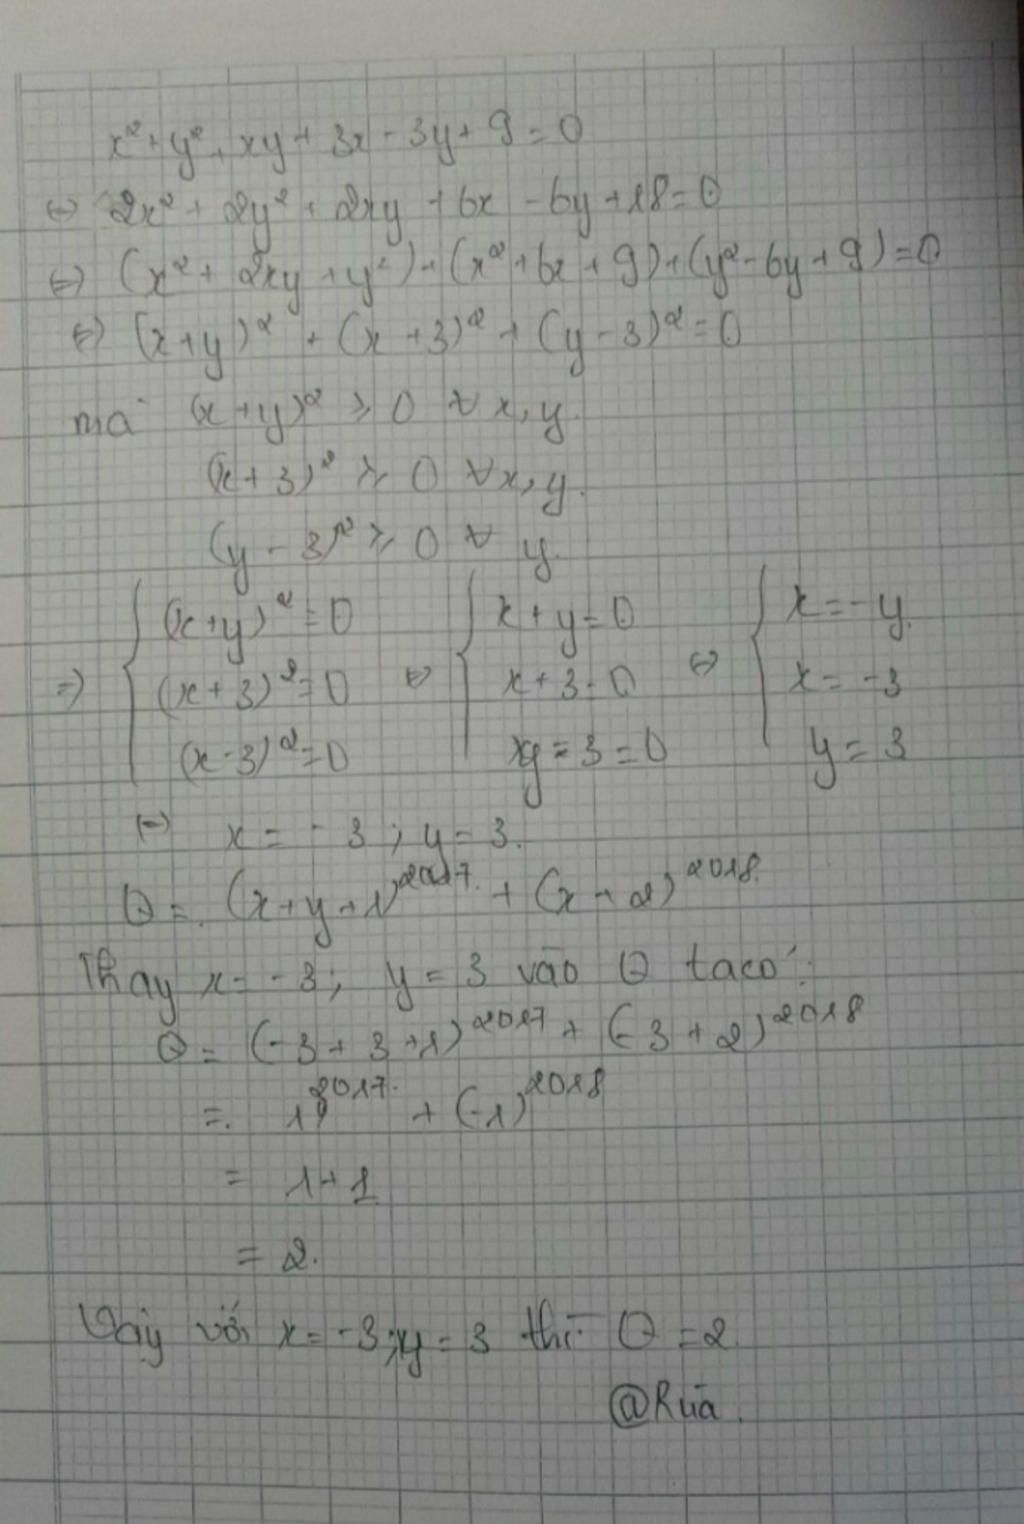 x² + y² + xy + 3x - 3y + 9 = 0
⇔ 2x² + 2y² + 2xy + 6x - 6y + 18 = 0
⇔ (x² + 2xy + y²) + (x² + 6x + 9) + (y² - 6y + 9) = 0
⇔ (x+y)² + (x+3)² + (y-3)² = 0
mà (x+y)² ≥ 0 ∀ x, y.
(x+3)² ≥ 0 ∀ x, y.
(y-3)² ≥ 0 ∀ y.
⇒ { (x+y)² = 0 ⇔ { x+y = 0 ⇔ { x = -y.
(x+3)² = 0 x+3 = 0 x = -3
(x-3)² = 0 xy = 3 = 0 y = 3
⇔ x = -3; y = 3.
Q = (x+y+1)²⁰¹⁷ + (x+2)²⁰¹⁸
Thay x = -3; y = 3 vào Q ta có:
Q = (-3+3+1)²⁰¹⁷ + (-3+2)²⁰¹⁸
= 1²⁰¹⁷ + (-1)²⁰¹⁸
= 1+1
= 2.
Vậy với x = -3; y = 3 thì Q = 2
@Rùa.